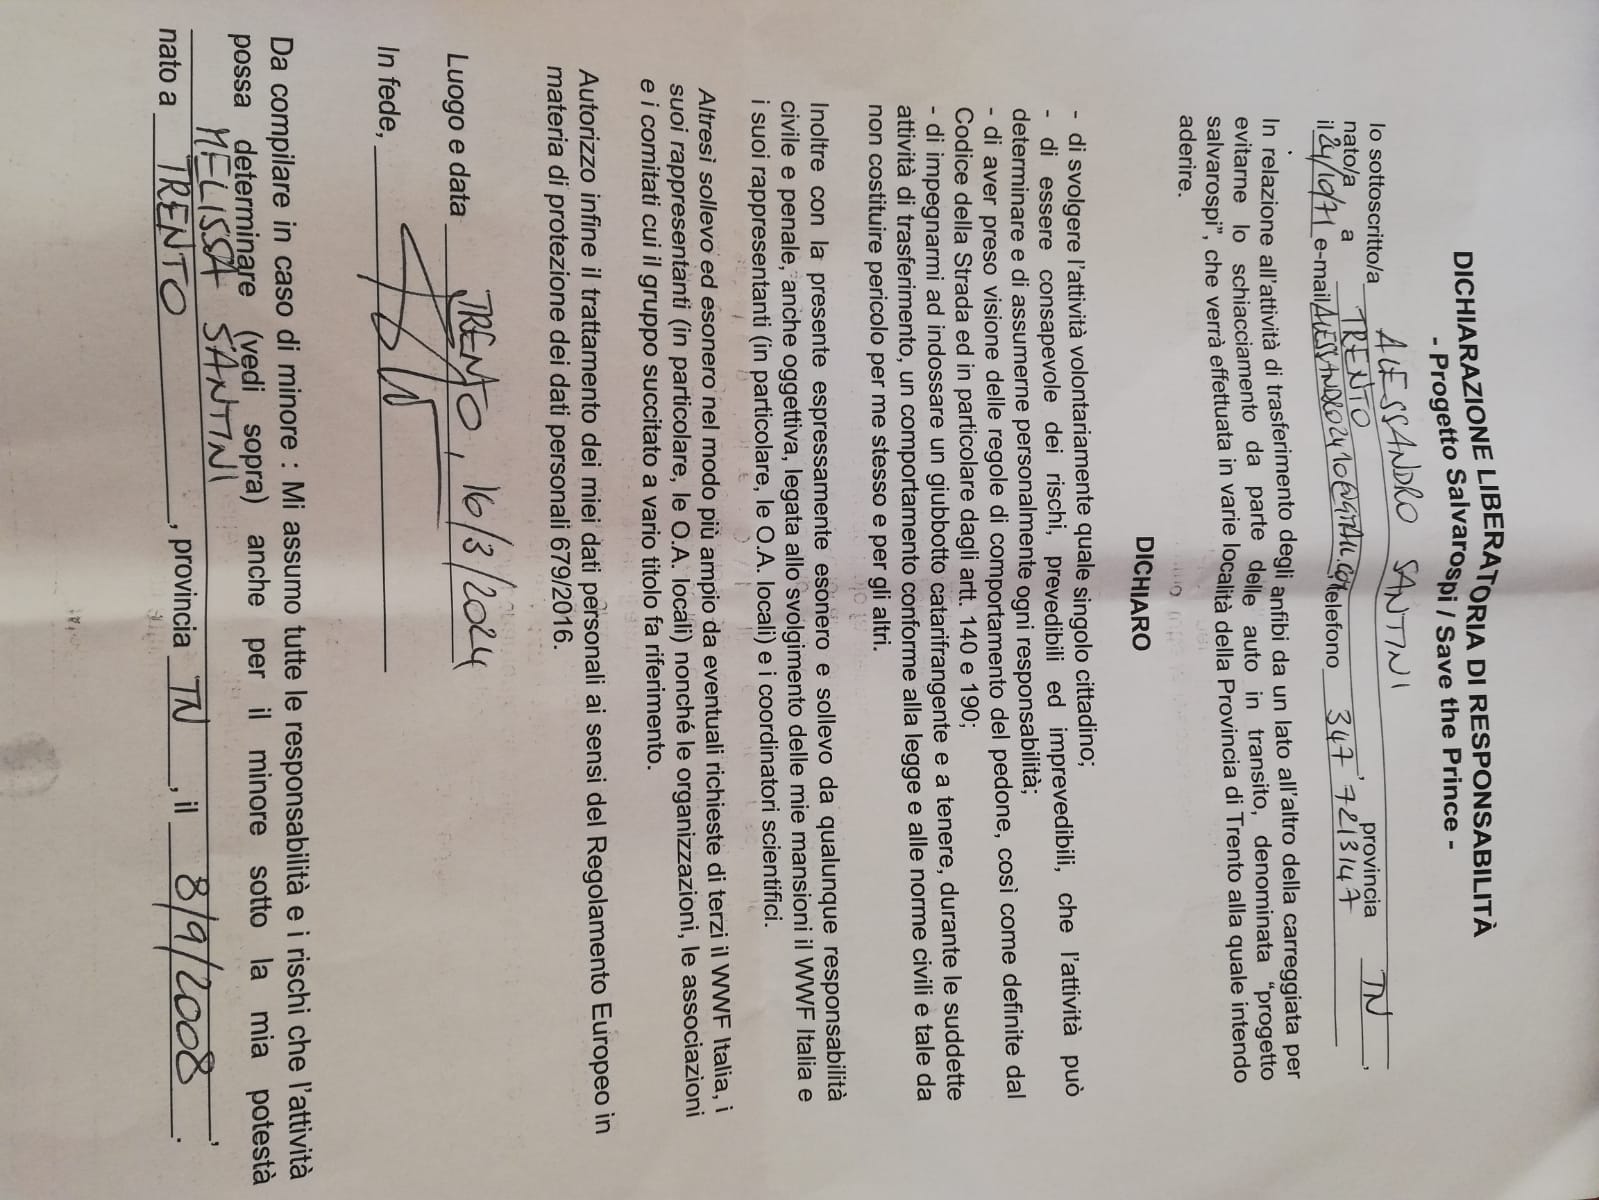 DICHIARAZIONE LIBERATORIA DI RESPONSABILITÀ
- Progetto Salvarospi / Save the Prince -
Io sottoscritto/a ALESSANDRO SANTINI
nato/a a TRENTO, provincia TN,
il 24/10/71 e-mail ALESSANDRO2410@GMAIL.COM, telefono 347 7213147
In relazione all'attività di trasferimento degli anfibi da un lato all'altro della carreggiata per
evitarne lo schiacciamento da parte delle auto in transito, denominata "progetto
salvarospi", che verrà effettuata in varie località della Provincia di Trento alla quale intendo
aderire.
DICHIARO
- di svolgere l'attività volontariamente quale singolo cittadino;
- di essere consapevole dei rischi, prevedibili ed imprevedibili, che l'attività può
determinare e di assumerne personalmente ogni responsabilità;
- di aver preso visione delle regole di comportamento del pedone, così come definite dal
Codice della Strada ed in particolare dagli artt. 140 e 190;
- di impegnarmi ad indossare un giubbotto catarifrangente e a tenere, durante le suddette
attività di trasferimento, un comportamento conforme alla legge e alle norme civili e tale da
non costituire pericolo per me stesso e per gli altri.
Inoltre con la presente espressamente esonero e sollevo da qualunque responsabilità
civile e penale, anche oggettiva, legata allo svolgimento delle mie mansioni il WWF Italia e
i suoi rappresentanti (in particolare, le O.A. locali) e i coordinatori scientifici.
Altresì sollevo ed esonero nel modo più ampio da eventuali richieste di terzi il WWF Italia, i
suoi rappresentanti (in particolare, le O.A. locali) nonché le organizzazioni, le associazioni
e i comitati cui il gruppo succitato a vario titolo fa riferimento.
Autorizzo infine il trattamento dei miei dati personali ai sensi del Regolamento Europeo in
materia di protezione dei dati personali 679/2016.
Luogo e data TRENTO, 16/3/2024
In fede,
Da compilare in caso di minore : Mi assumo tutte le responsabilità e i rischi che l'attività
possa determinare (vedi sopra) anche per il minore sotto la mia potestà
MELISSA SANTINI,
nato a TRENTO, provincia TN, il 8/9/2008.